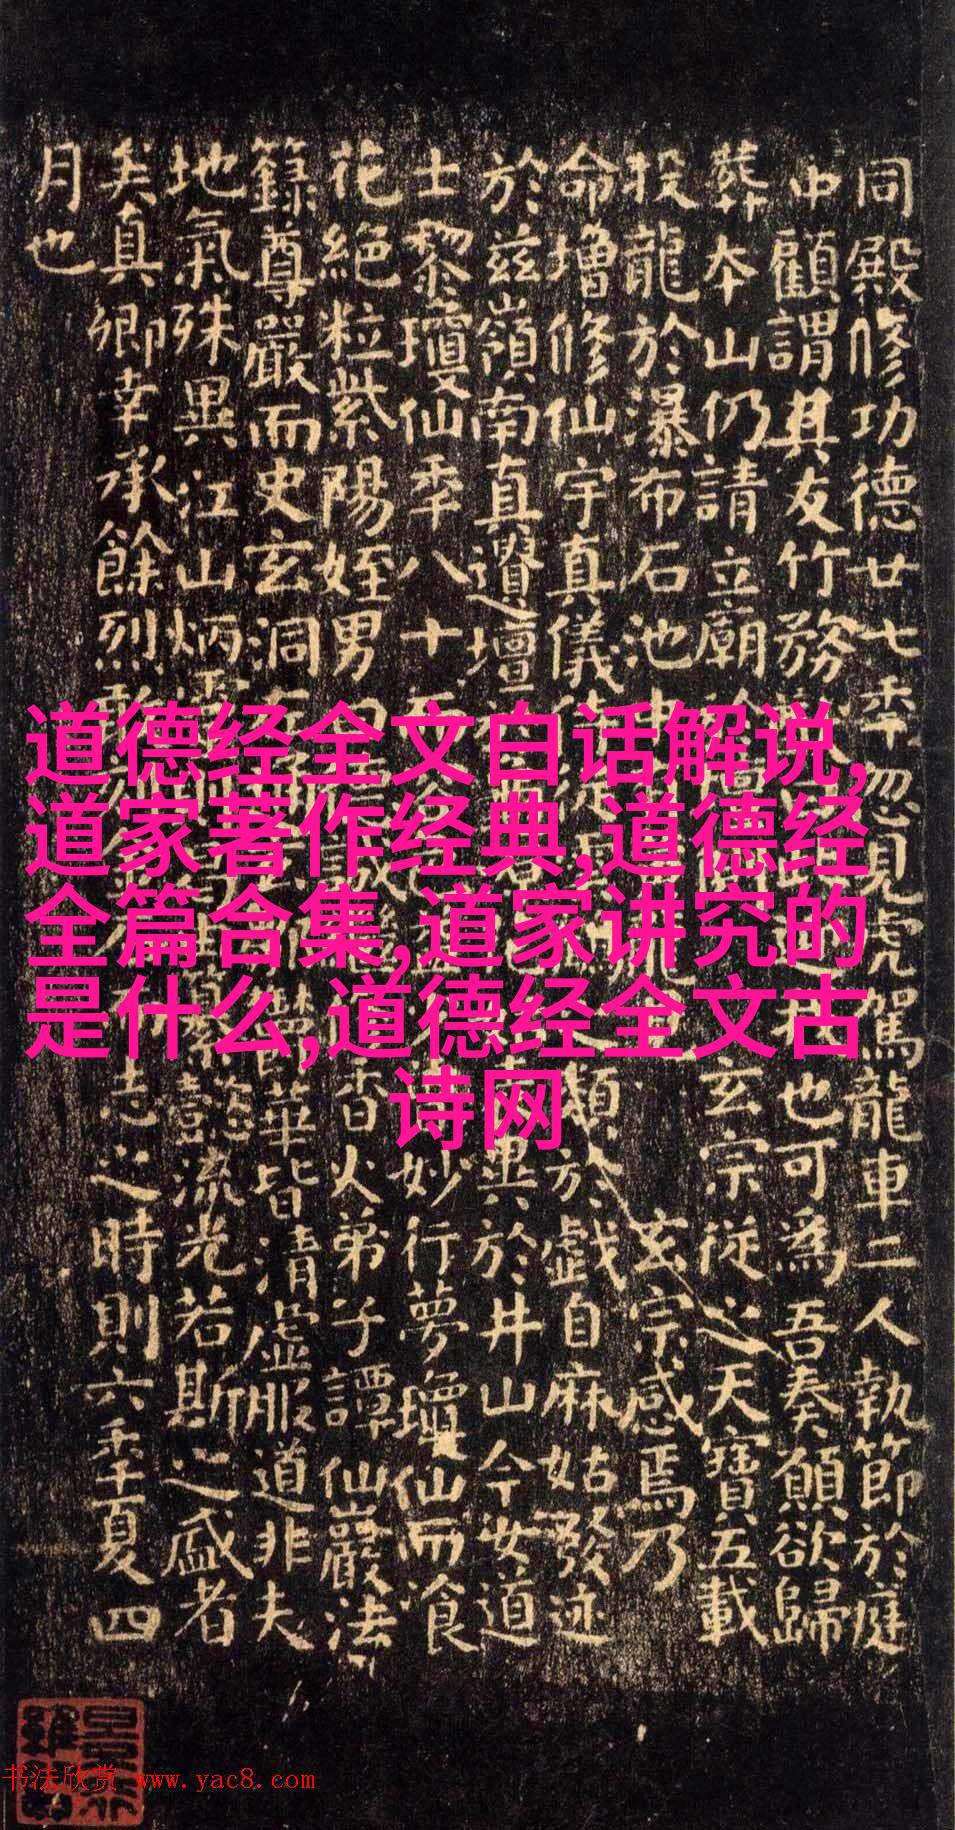 同殿修功德廿七年忽見虎駕龍車二人執節於庭
中顧謂其友竹務也可為吾奏願欲歸
葬本山仍請立廟玄宗從之天寶五載
投龍於瀑布石池中玄宗感焉乃
命增修仙宇真儀侍從類於戲自麻姑發迹
於茲嶺南真遺壇異於井山今女道
士黎瓊仙年八十而妙行夢瓊仙而飡
花絕粒紫陽姪男曰誠香火弟子譚仙巖法
籙尊嚴而史玄洞華皆清虛服道非夫
地氣殊異江山炳靈懿流光若斯之盛者
矣真卿幸承餘烈敢志之時則六年夏四
月也
道德经全文白话解说,
道家著作经典,道德经
全篇合集,道家讲究的
是什么,道德经全文古
诗网
书法欣赏 www.yac8.com